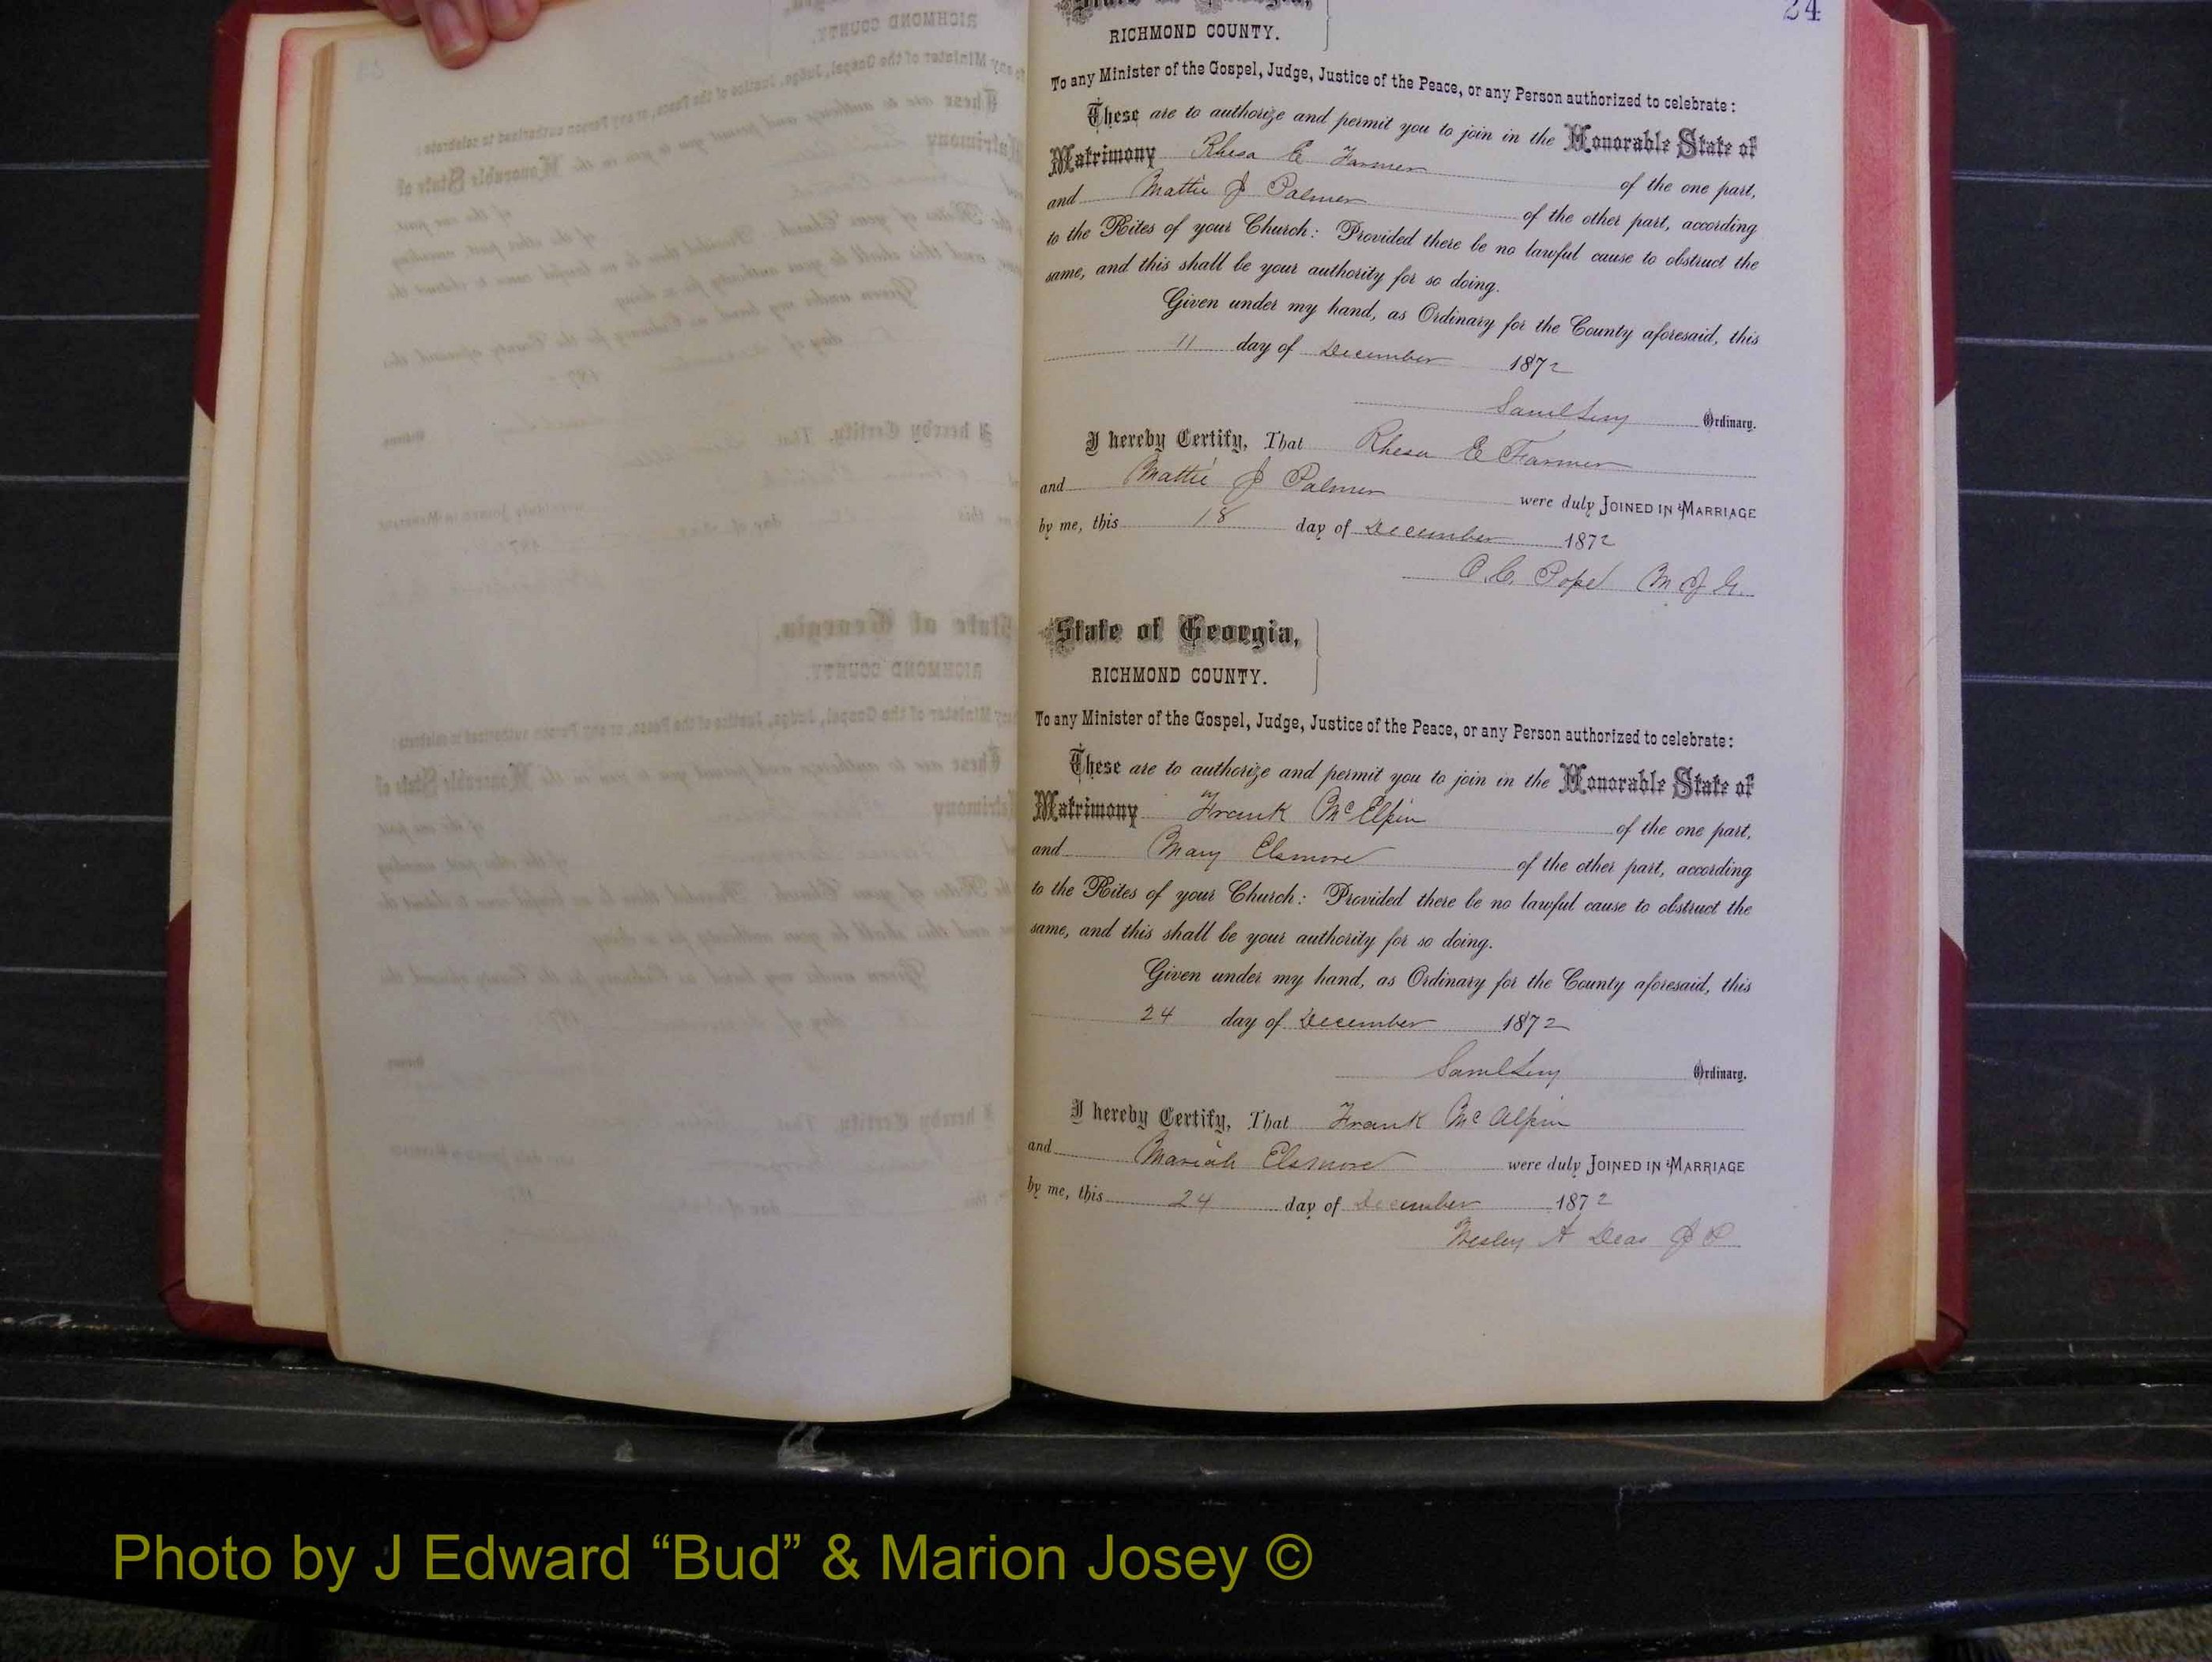 24
State of Georgia,
RICHMOND COUNTY.
To any Minister of the Gospel, Judge, Justice of the Peace, or any Person authorized to celebrate:
These are to authorize and permit you to join in the Honorable State of
Matrimony Rhesa E Farmer of the one part,
and Mattie J Palmer of the other part, according
to the Rites of your Church: Provided there be no lawful cause to obstruct the
same, and this shall be your authority for so doing.
Given under my hand, as Ordinary for the County aforesaid, this
11 day of December 1872
Saml Levy Ordinary.
I hereby Certify, That Rhesa E Farmer
and Mattie J Palmer were duly JOINED IN MARRIAGE
by me, this 18 day of December 1872
C. C. Pope M of G.
State of Georgia,
RICHMOND COUNTY.
To any Minister of the Gospel, Judge, Justice of the Peace, or any Person authorized to celebrate:
These are to authorize and permit you to join in the Honorable State of
Matrimony Frank McElpin of the one part,
and Mary Elsmore of the other part, according
to the Rites of your Church: Provided there be no lawful cause to obstruct the
same, and this shall be your authority for so doing.
Given under my hand, as Ordinary for the County aforesaid, this
24 day of December 1872
Saml Levy Ordinary.
I hereby Certify, That Frank McAlpin
and Mariah Elsmore were duly JOINED IN MARRIAGE
by me, this 24 day of December 1872
Wesley A Deas J P
Photo by J Edward “Bud” & Marion Josey ©